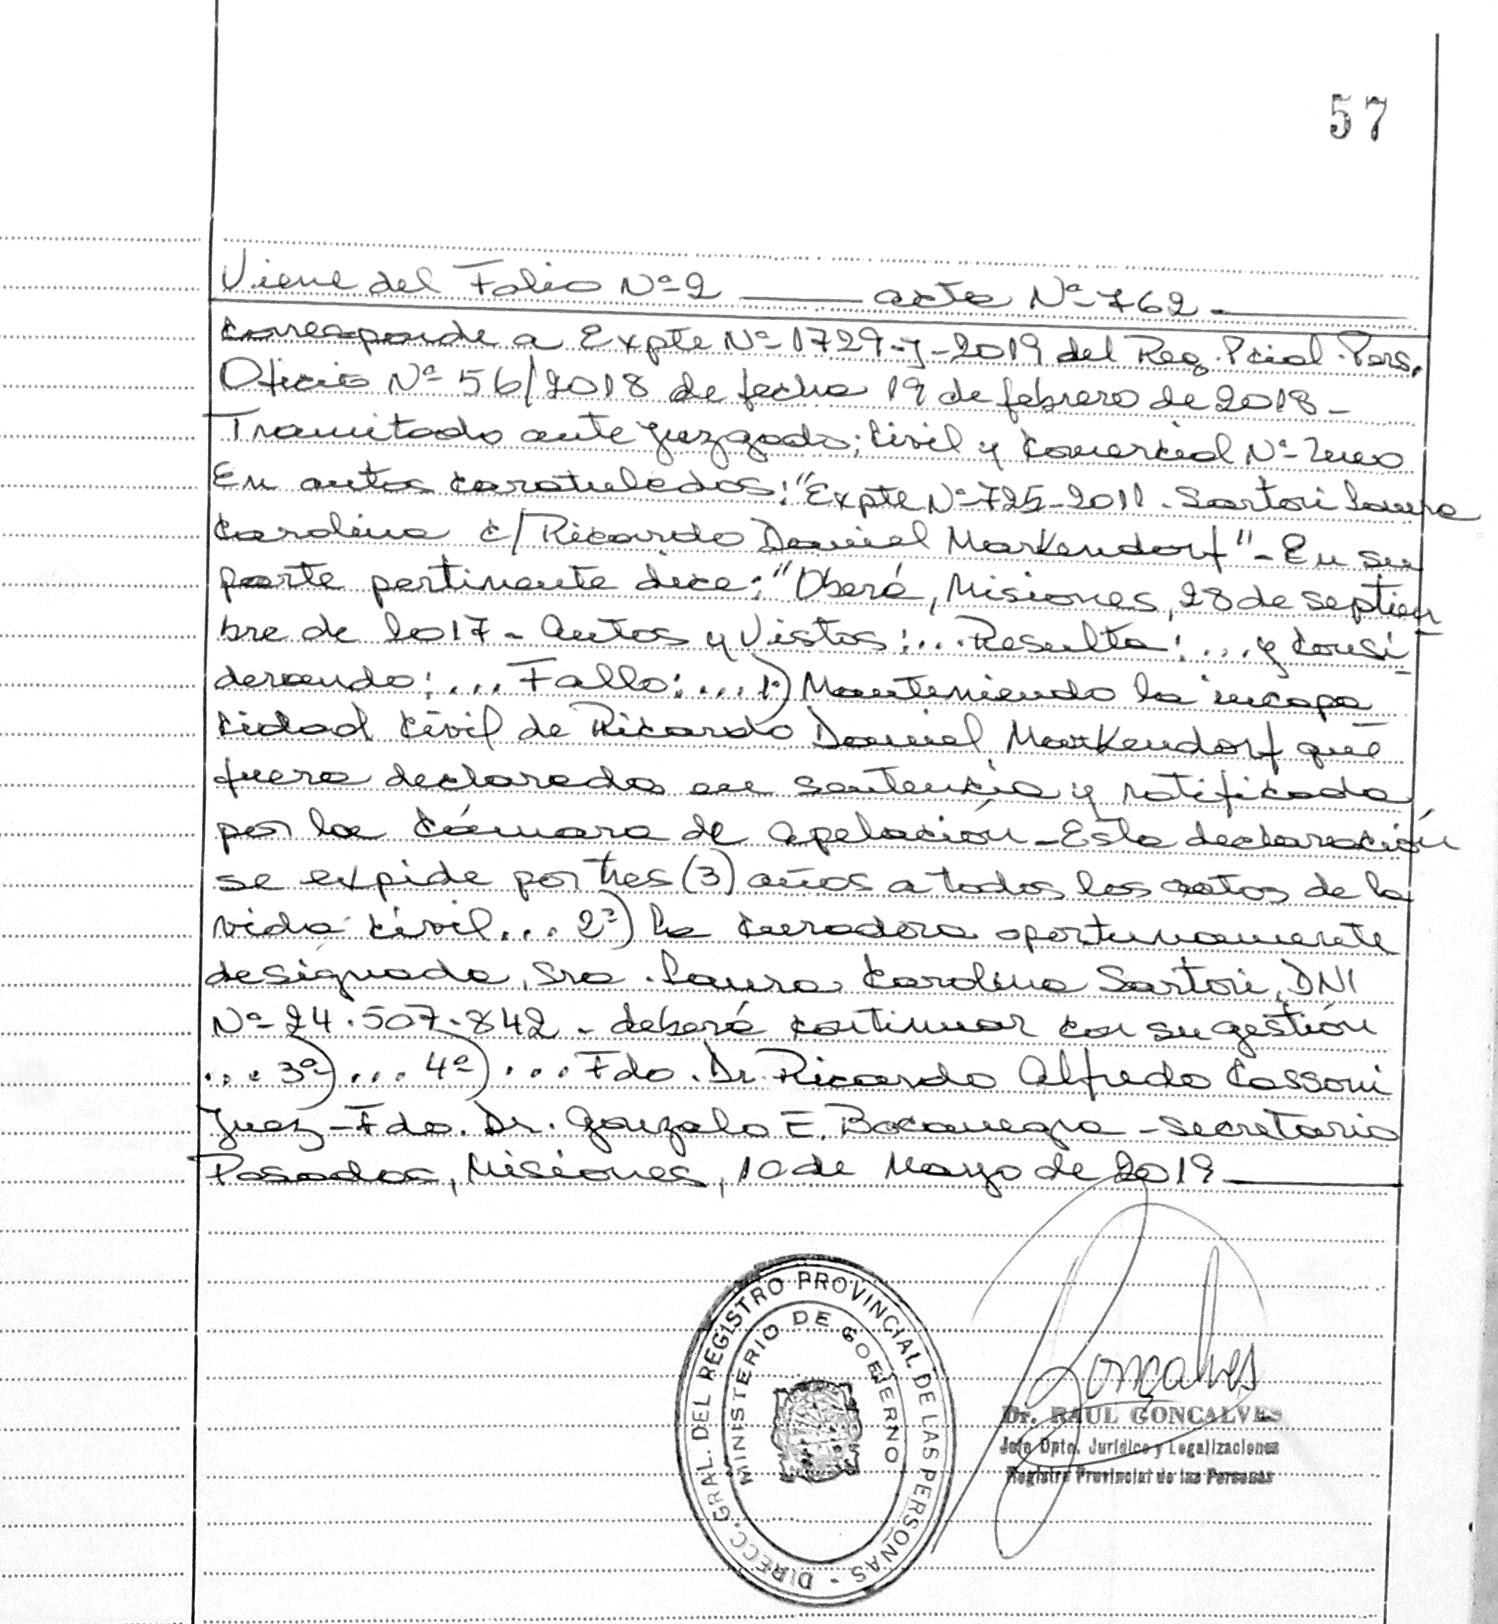 57
Viene del Folio Nº 2 acta Nº 762
corresponde a Expte Nº 1729-J-2019 del Reg. Pcial. Pers.
Oficio Nº 56/2018 de fecha 19 de febrero de 2018-
Tramitado ante Juzgado; Civil y Comercial Nº Uno
En autos caratulados: "Expte Nº 725-2011. Sartori Laura
Carolina c/ Ricardo Daniel Markendorf" - En su
parte pertinente dice: "Oberá, Misiones, 28 de septiem
bre de 2017 - Autos y Vistos: ... Resulta: ... y Consi
derando: ... Fallo: ... 1º) Manteniendo la incapa
cidad civil de Ricardo Daniel Markendorf que
fuera declarada en sentencia y ratificada
por la Cámara de Apelación - Esta declaración
se expide por tres (3) años a todos los actos de la
vida civil ... 2º) La curadora oportunamente
designada, Sra. Laura Carolina Sartori, DNI
Nº 24.507.842 - deberá continuar con su gestión
... 3º) ... 4º) ... Fdo. Dr. Ricardo Alfredo Cassoni
Juez - Fdo. Dr. Gonzalo E. Bocanegra - secretario
Posadas, Misiones, 10 de Mayo de 2019
DIRECC. GRAL. DEL REGISTRO PROVINCIAL DE LAS PERSONAS -
MINISTERIO DE GOBIERNO
Gonçalves
Dr. RAUL GONCALVES
Jefe Dpto. Jurídico y Legalizaciones
Registro Provincial de las Personas